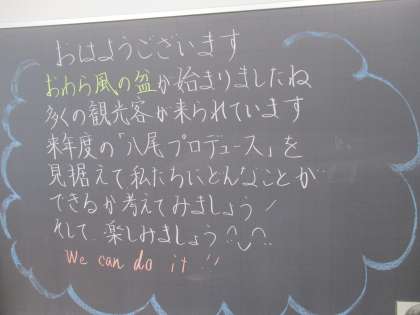 おはようございます
おわら風の盆が始まりましたね
多くの観光客が来られています
来年度の「八尾プロデュース」を
見据えて私たちにどんなことが
できるか考えてみましょう!
そして 楽しみましょう
We can do it !!